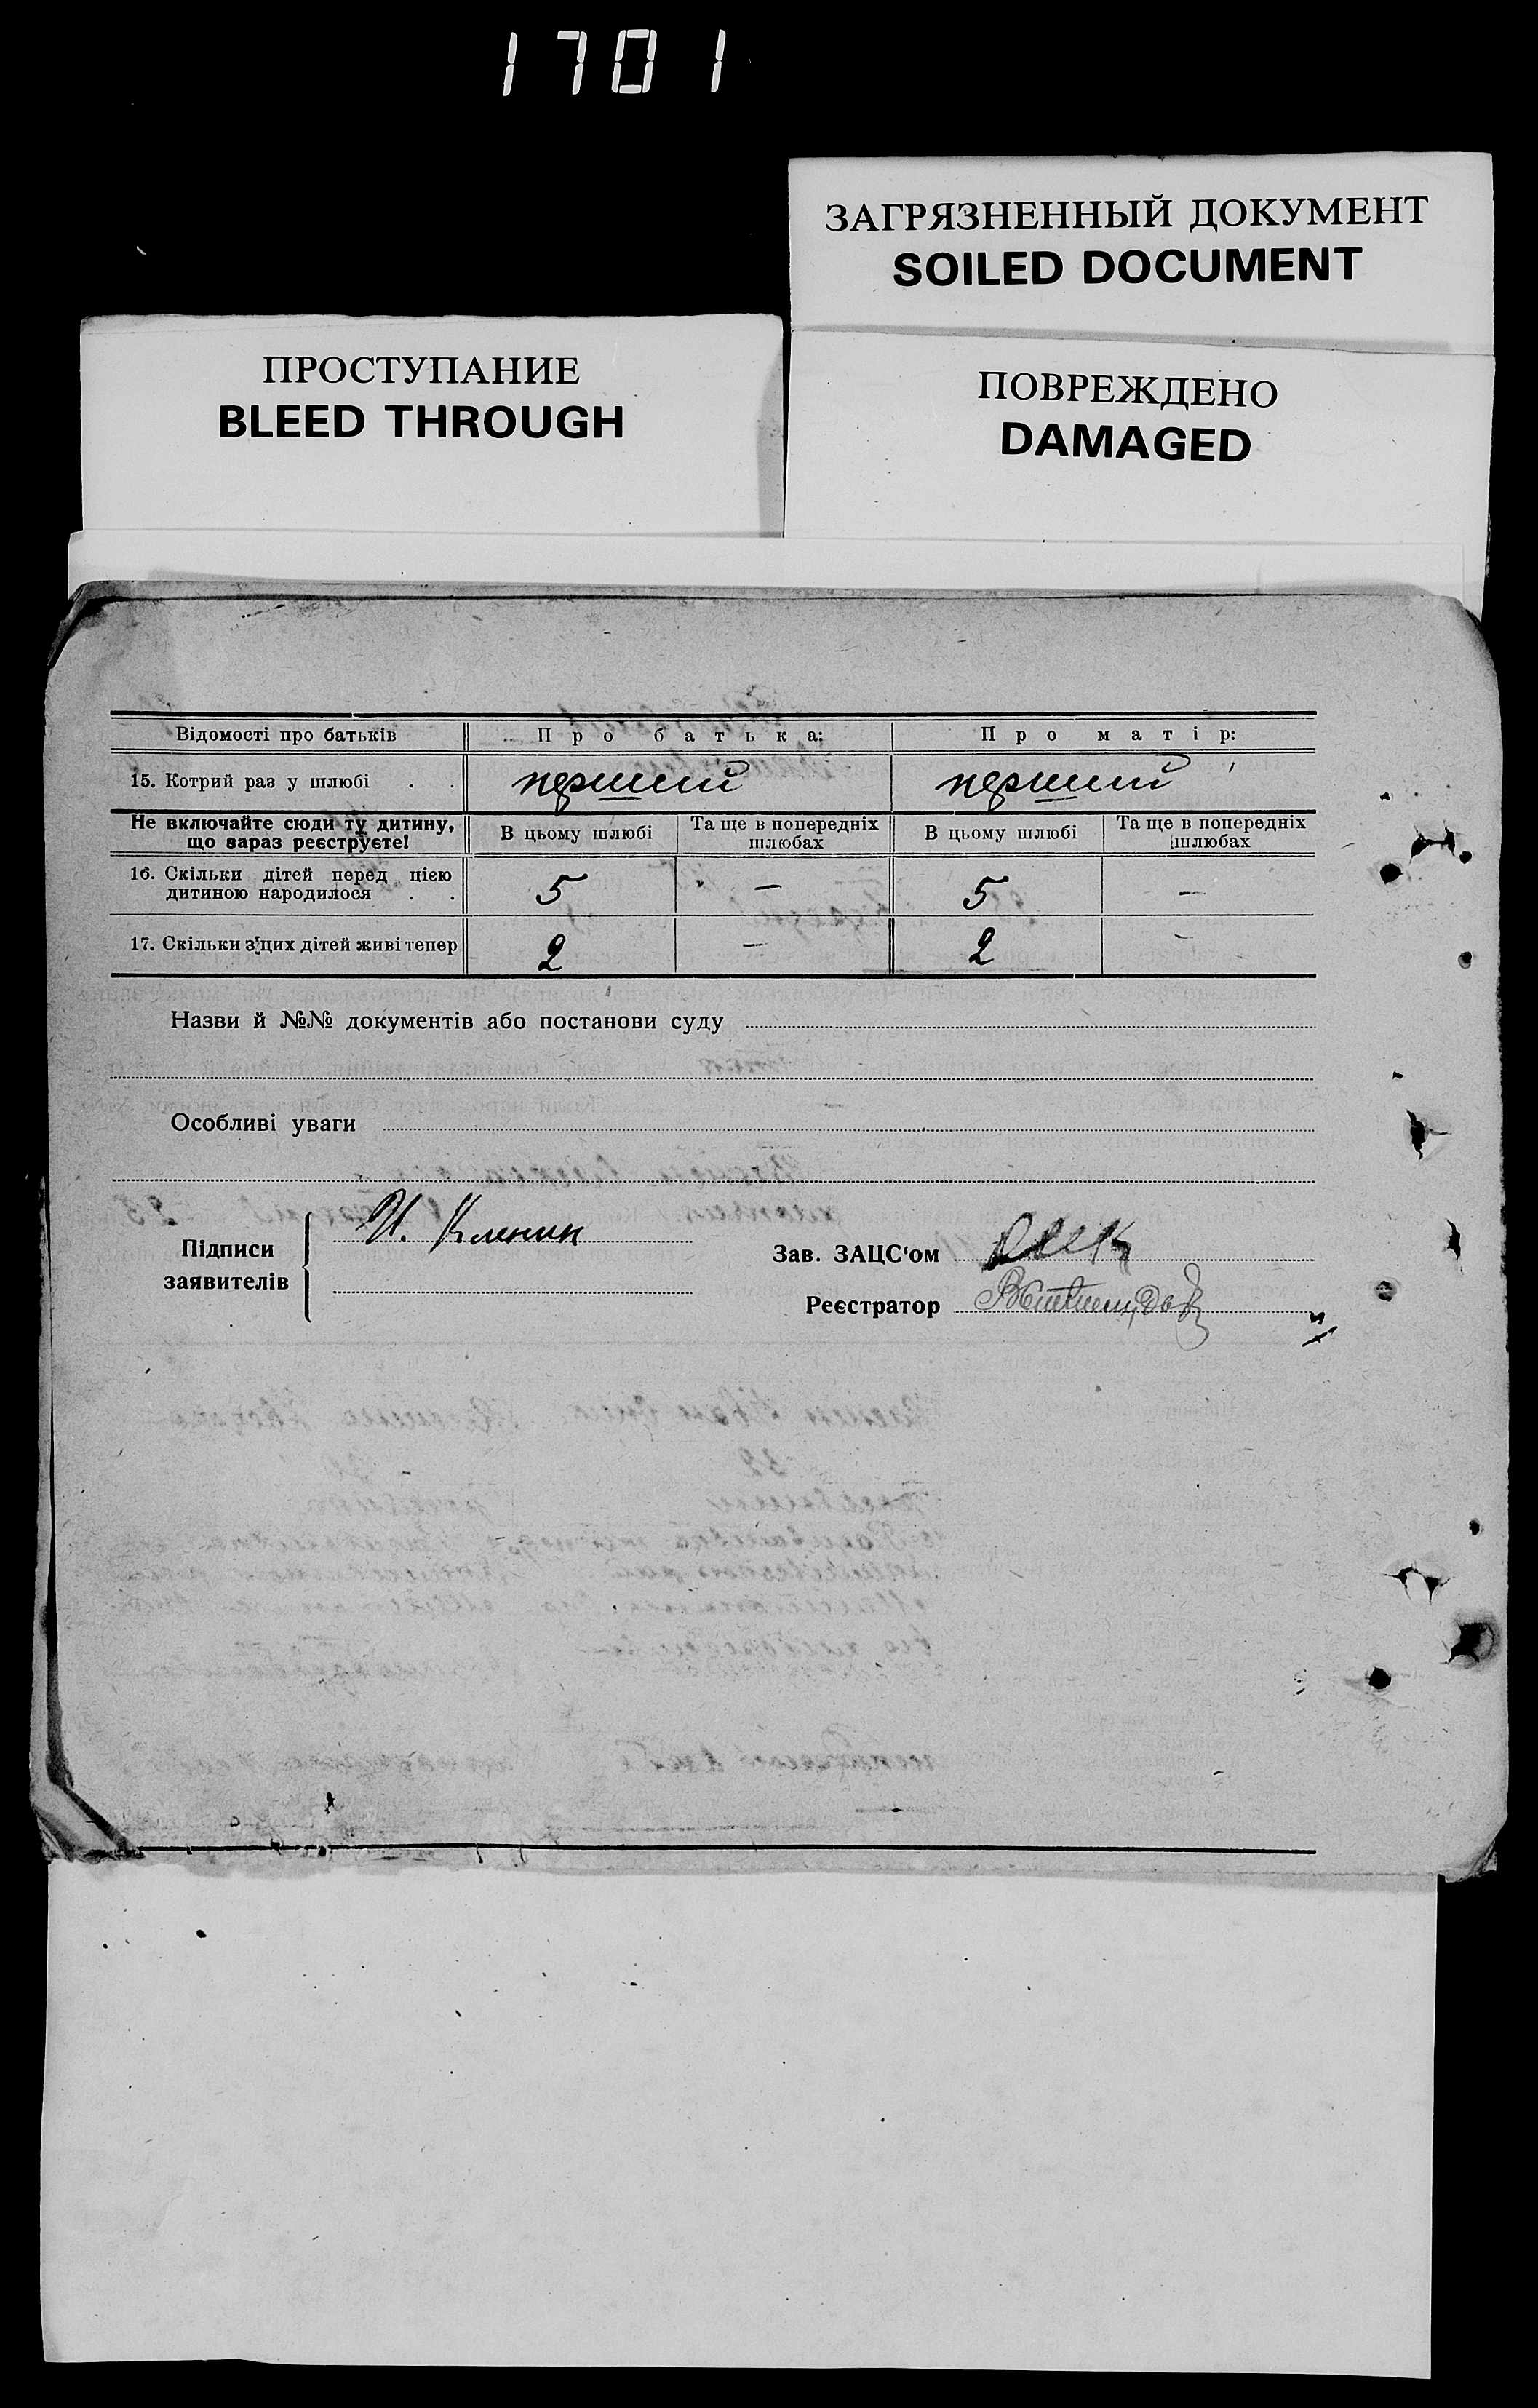 1701
ЗАГРЯЗНЕННЫЙ ДОКУМЕНТ
SOILED DOCUMENT
ПРОСТУПАНИЕ
BLEED THROUGH
ПОВРЕЖДЕНО
DAMAGED
Відомості про батьків Про батька: Про матір:
15. Котрий раз у шлюбі . . перший перший
Не включайте сюди ту дитину, що вараз реєструєте! В цьому шлюбі Та ще в попередніх шлюбах В цьому шлюбі Та ще в попередніх шлюбах
16. Скільки дітей перед цією дитиною народилося . . 5 — 5 —
17. Скільки з цих дітей живі тепер 2 — 2 —
Назви й №№ документів або постанови суду
Особливі уваги
Підписи заявителів И. Кленин
Зав. ЗАЦС‘ом
Реєстратор